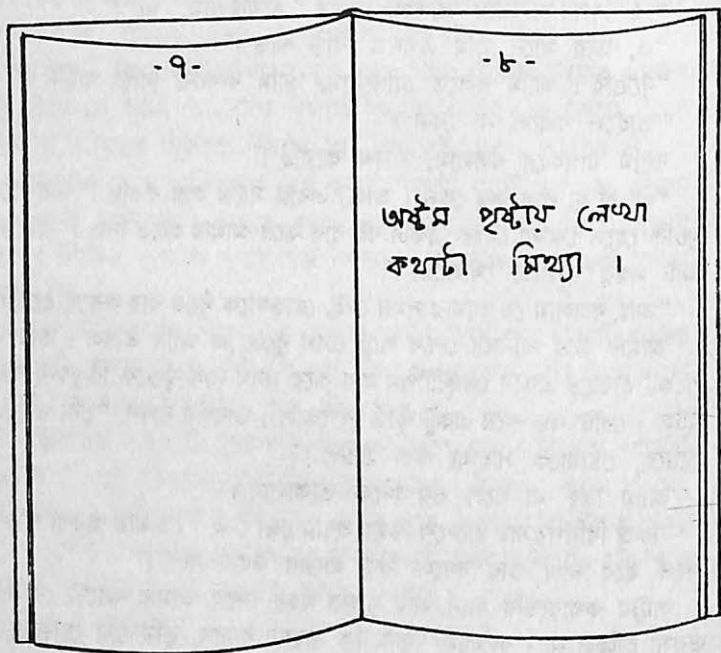 -৭-
-৮-
অষ্টম পৃষ্ঠায় লেখা
কথাটা মিথ্যা ।